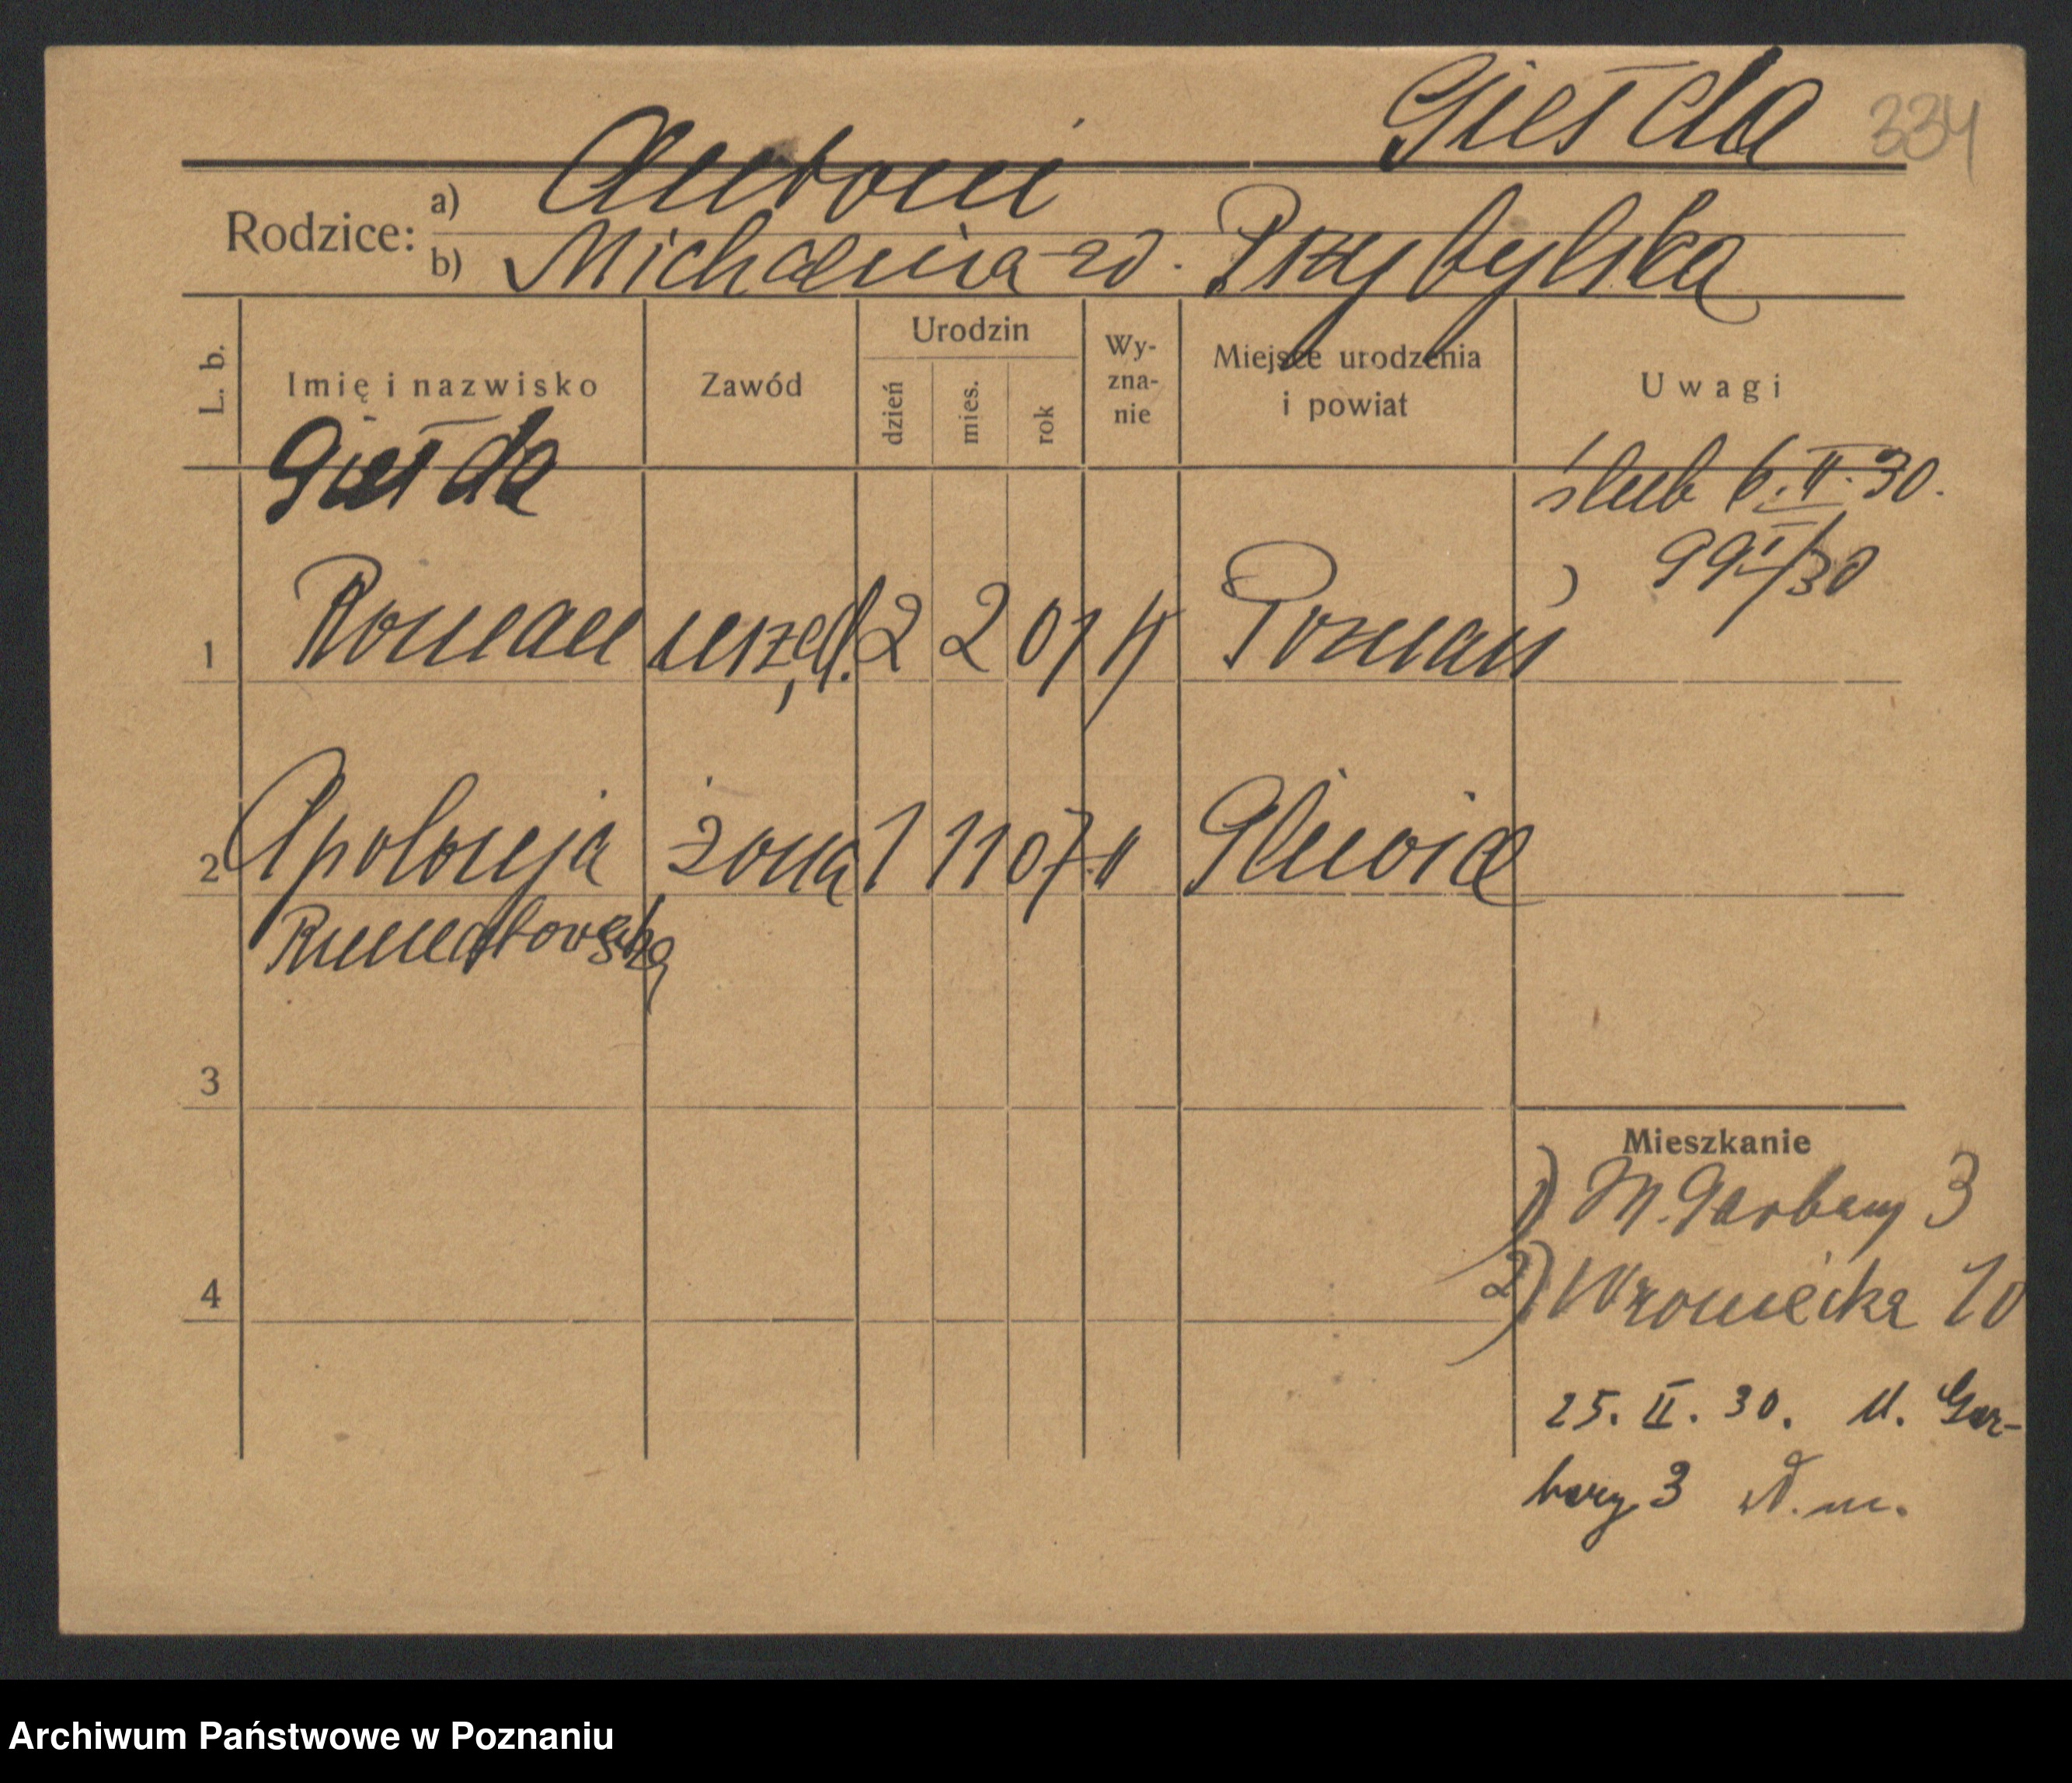 Giełda 334
Rodzice: a) Antoni
b) Michalina zd. Przybylska
L. b.
Imię i nazwisko
Zawód
Urodzin
dzień
mies.
rok
Wy-
zna-
nie
Miejsce urodzenia
i powiat
Uwagi
Giełda
ślub 6.II.30.
99 I/30
1 Roman urzęd. 2 2 01 Poznań
2 Apolonja żona 1 11 07 " Gliwice
3
4
Mieszkanie
1) M. Garbary 3
2) Wroniecka 10
25. II. 30. M. Gar-
bary 3 w. m.
Archiwum Państwowe w Poznaniu